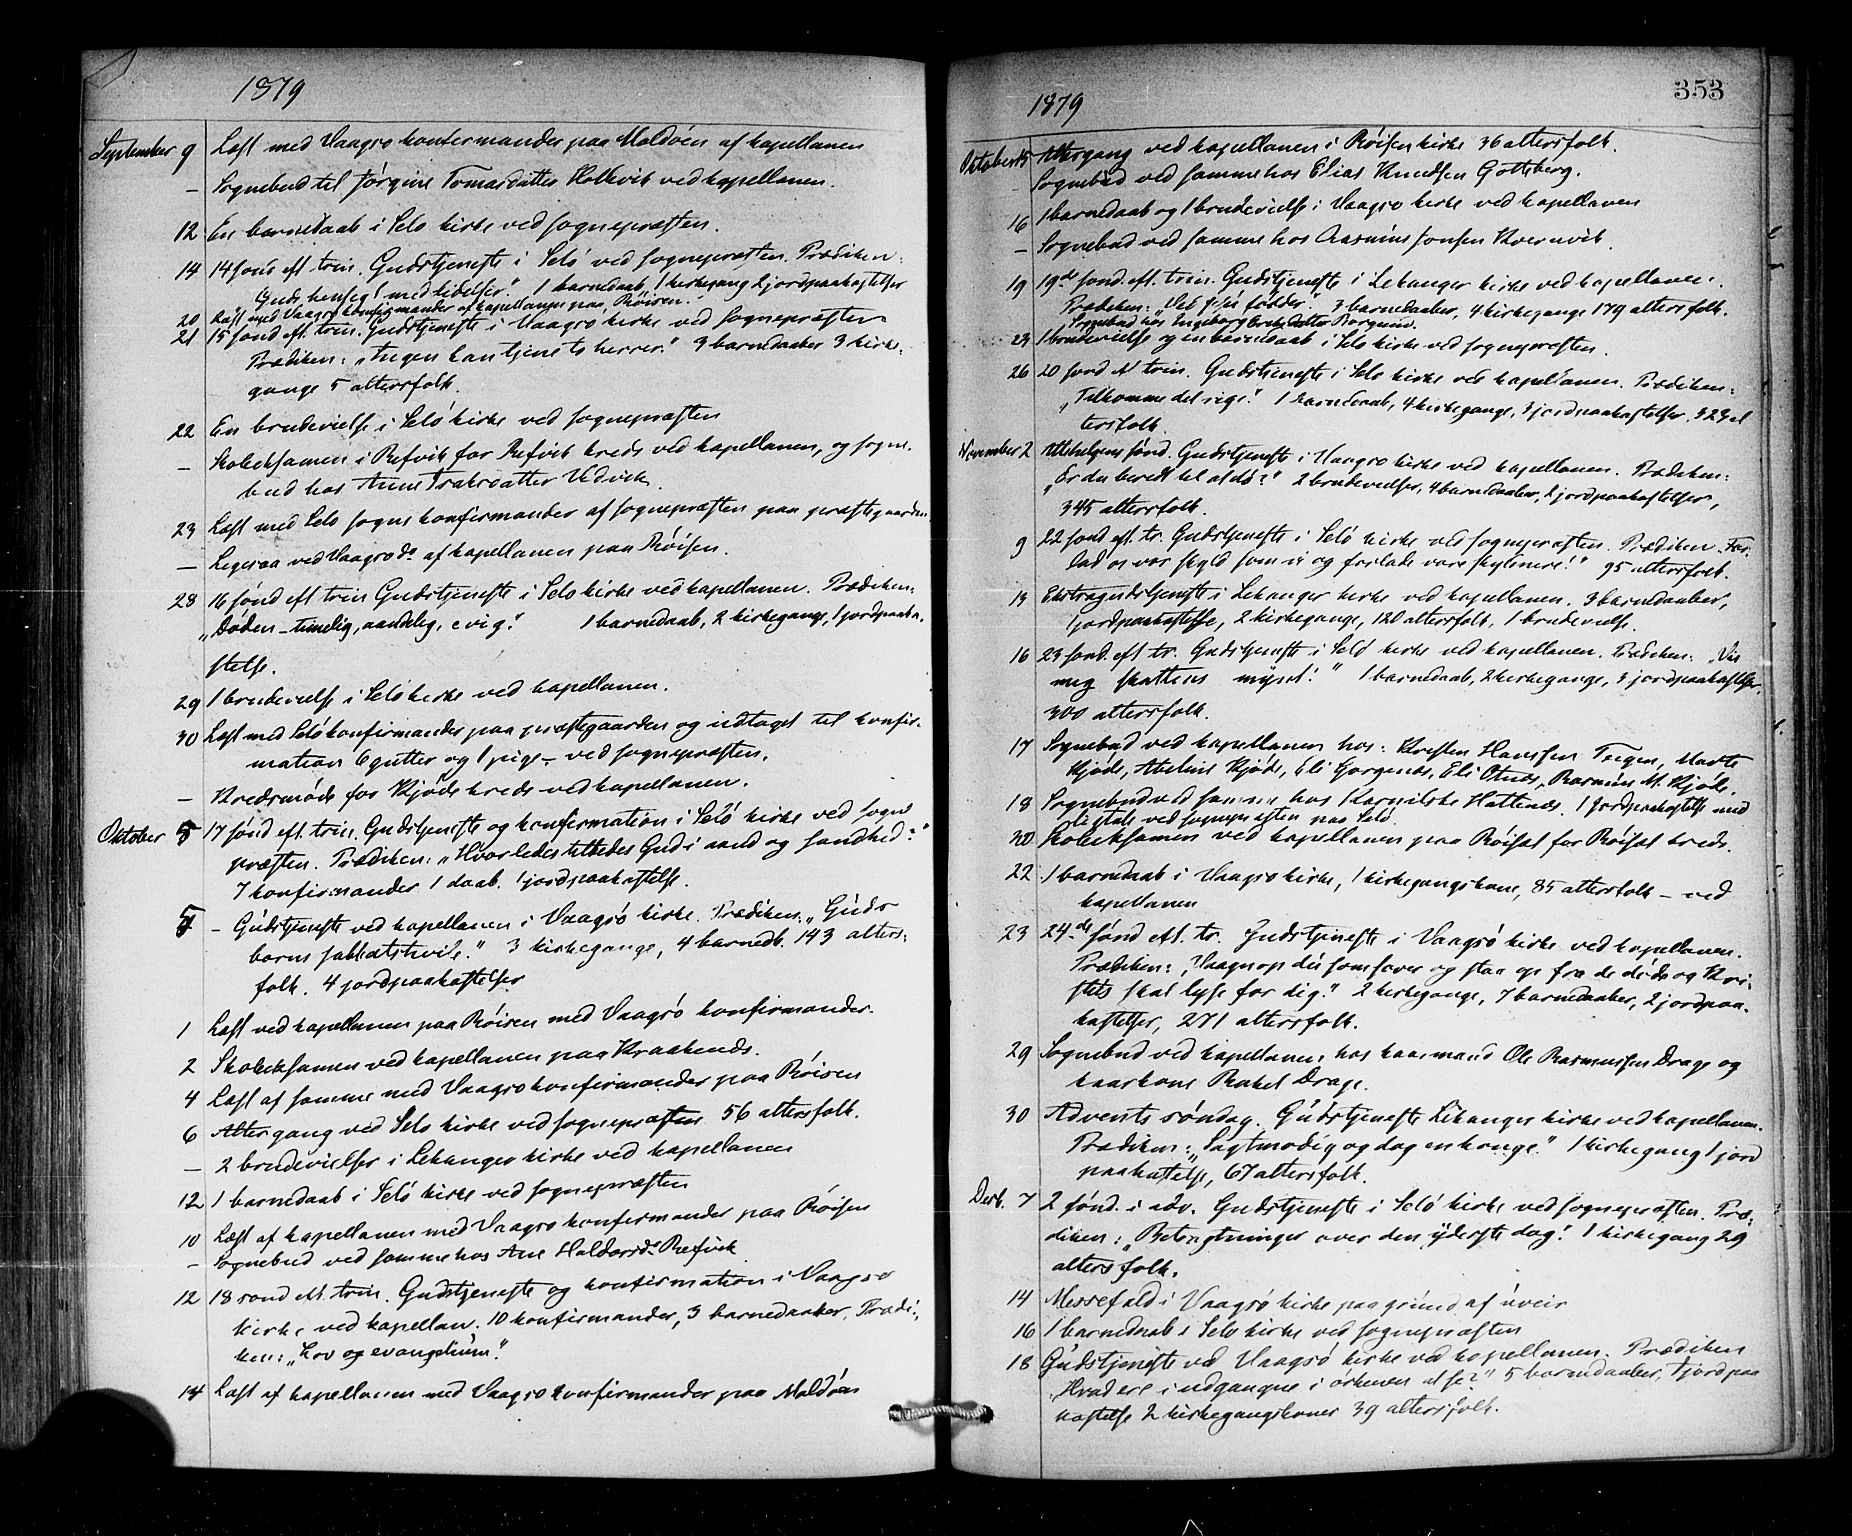 1879
September 9 Læst med Vaagsø konfermander paa Moldøen af kapellanen
— Sognebud til Jørgine Tomasdatter Holkvik ved kapellanen.
12 En barnedaab i Selø kirke ved sognepræsten.
14 14 sønd eft. trin. Gudstjeneste i Selø ved sognepræsten. Prædiken:
"Guds hensigt med lidelser" 1 barnedaab, 1 kirkegang 2 jordpaakastelser
20 Læst med Vaagsø konfirmander af kapellanen paa Røisen.
21 15 sønd eft. trin. Gudstjeneste i Vaagsø kirke ved sognepræsten
Prædiken: "Ingen kan tjene to herrer." 3 barnedaaber 3 kirke-
gange 5 altersfolk.
22 En brudevielse i Selø kirke ved sognepræsten
— Skoleeksamen i Refvik for Refvik kreds ved kapellanen, og sogne-
bud hos Anne Isaksdatter Vedvik.
23 Læst med Selø sogns konfirmander af sognepræsten paa præstegaarden
— Ligesaa ved Vaagsø do af kapellanen paa Røisen.
28 16 sønd eft trin Gudstjeneste i Selø kirke ved kapellanen. Prædiken:
"Døden – timelig, aandelig, evig." 1 barnedaab, 2 kirkegange, 1 jordpaaka-
stelse.
29 1 brudevielse i Selø kirke ved kapellanen.
30 Læst med Selø konfirmander paa præstegaarden og udtaget til konfir-
mation 6 gutter og 1 pige – ved sognepræsten.
— Kredsmøde for Kjøde kreds ved kapellanen.
Oktober 5 17 sønd eft. trin. Gudstjeneste og konfirmation i Selø kirke ved sogne
præsten. Prædiken: "Hvorledes tilbedes Gud i aand og sandhed?"
7 konfirmander 1 daab. 1 jordpaakastelse.
5 – Gudstjeneste ved kapellanen i Vaagsø kirke. Prædiken: "Guds
barns sabbatshvile." 3 kirkegange, 4 barnedb. 143 alters-
folk. 4 jordpaakastelser
1 Læst ved kapellanen paa Røisen med Vaagsø konfirmander.
2 Skoleeksamen ved kapellanen paa Kraakenæs.
4 Læst af samme med Vaagsø konfirmander paa Røisen
6 Altergang ved Selø kirke ved sognepræsten 56 altersfolk.
— 2 brudevielser i Lekanger kirke ved kapellanen
12 1 barnedaab i Selø kirke ved sognepræsten
10 Læst af kapellanen med Vaagsø konfirmander paa Røisen
– Sognebud ved samme hos Ane Haldorsd. Refvik
12 18 sønd eft. trin. Gudstjeneste og konfirmation i Vaagsø
kirke ved kapellan. 10 konfirmander, 3 barnedaaber. Prædi-
ken: "Lov og evangelium."
14 Læst af kapellanen med Vaagsø konfirmander paa Moldøen
353
1879
Oktober 15 Altergang ved kapellanen i Røisen kirke 36 altersfolk.
– Sognebud ved samme hos Elias Knudsen Gotteberg.
16 1 barnedaab og 1 brudevielse i Vaagsø kirke ved kapellanen
– Sognebud ved samme hos Rasmus Jonsen Kvernvik.
19 19de sønd. eft. trin. Gudstjeneste i Lekanger kirke ved kapellanen.
Prædiken: 3 barnedaaber, 4 kirkegange 179 altersfolk.
Sognebud hos Ingeborg Borgund.
23 1 brudevielse og en barnedaab i Selø kirke ved sognepræsten.
26 20 sønd ef. trin. Gudstjeneste i Selø kirke ved kapellanen. Prædiken:
"Tilkomme dit rige." 1 barnedaab, 4 kirkegange, 3 jordpaakastelser. 323 al
tersfolk.
November 2 Allehelgens sønd. Gudstjeneste i Vaagsø kirke ved kapellanen. Prædiken:
"Er du beredt til at dø?" 2 brudevielser, 4 barnedaaber, 2 jordpaakastelser,
345 altersfolk.
9 22 sønd ef. tr. Gudstjeneste i Selø kirke ved sognepræsten. Prædiken "For-
lad os vor skyld som vi og forlade vore skyldnere!" 95 altersfolk.
13 Ekstragudstjeneste i Lekanger kirke ved kapellanen. 3 barnedaaber,
1 jordpaakastelse, 2 kirkegange, 120 altersfolk, 1 brudevielse.
16 23 sønd. eft tr. Gudstjeneste i Selø kirke ved kapellanen. Prædiken: "Vis
mig skattens mynt!" 1 barnedaab, 2 kirkegange, 3 jordpaakastelser,
300 altersfolk.
17 Sognebud ved kapellanen hos: Kresten Hanssen Teigen, Marte
Kjøde, Abelone Kjøde, Eli Gorgenæs, Eli Otnæs, Rasmus M. Kjøde.
18 Sognebud ved samme hos Kornilske Hatlenæs. 1 jordpaakastelse med
ligtale ved sognepræsten paa Selø.
20 Skoleeksamen ved kapellanen paa Røiset for Røiset kreds.
22 1 barnedaab i Vaagsø kirke, 1 kirkegangskone, 85 altersfolk – ved
kapellanen
23 24de sønd eft. tr. Gudstjeneste i Vaagsø kirke ved kapellanen.
Prædiken: "Vaagn op du som sover og staa op fra de døde og Kri-
stus skal lyse for dig." 2 kirkegange, 7 barnedaaber, 2 jordpaa-
kastelser, 271 altersfolk.
29 Sognebud ved kapellanen hos kaarmand Ole Rasmussen Drage og
kaarkone Rakel Drage.
30 Advents søndag. Gudstjeneste Lekanger kirke ved kapellanen.
Prædiken: "Sagtmodig og dog en konge." 1 kirkegang 1 jord
paakastelse, 67 altersfolk.
Decb. 7 2 sønd. i adv. Gudstjeneste i Selø kirke ved sognepræsten. Præ-
diken: "Betragtninger over den yderste dag." 1 kirkegang 29
altersfolk.
14 Messefald i Vaagsø kirke paa grund af uveir
16 1 barnedaab i Selø kirke ved sognepræsten
18 Gudstjeneste ved Vaagsø kirke ved kapellanen. Prædiken
"Hvad ere i udgangne i ørkenen at se?" 5 barnedaaber, 1 jordpaa
kastelse 2 kirkegangskoner 39 altersfolk.